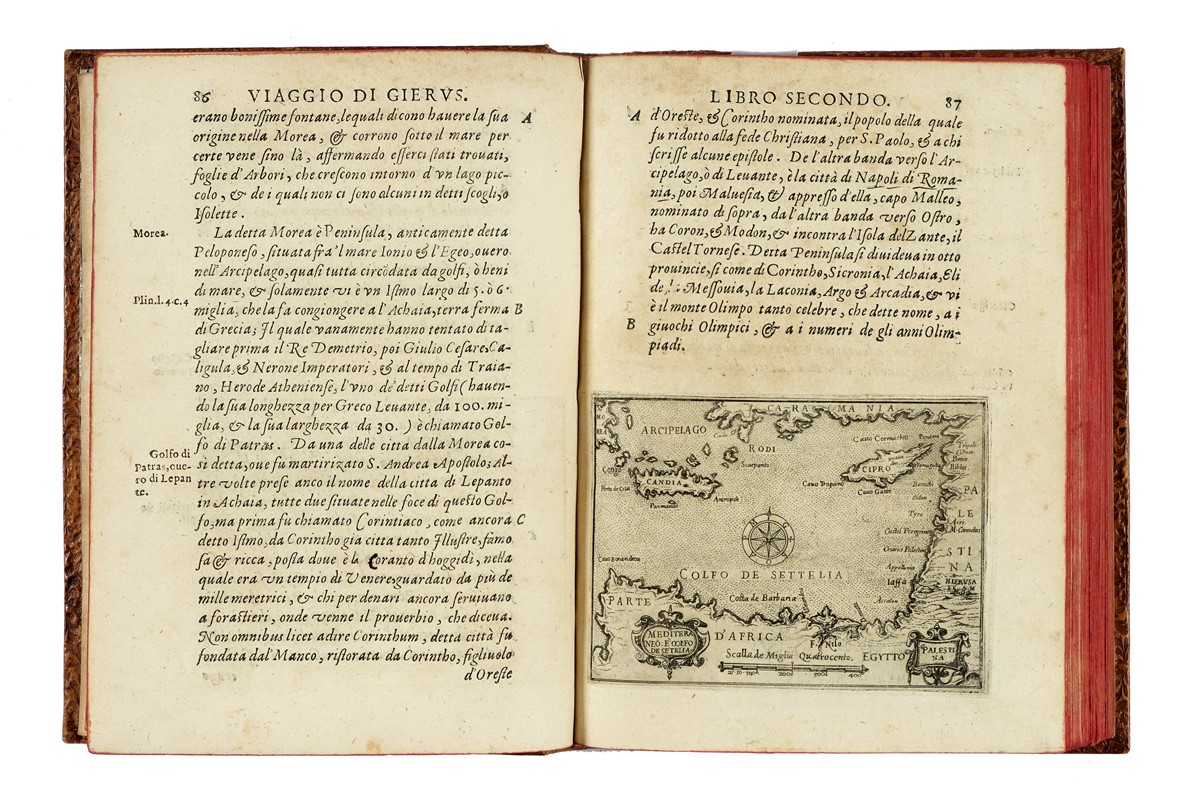 86 VIAGGIO DI GIERVS.
erano bonissime fontane, lequali dicono hauere la sua A
origine nella Morea, & corrono sotto il mare per
certe vene sino là, affermando esserci stati trouati,
foglie d'Arbori, che crescono intorno d'vn lago pic-
colo, & de i quali non ci sono alcuni in detti scogli, o
Isolette.
Morea. La detta Morea è Peninsula, anticamente detta
Peloponeso, situata fra'l mare Ionio & l'Egeo, ouero
nell'Arcipelago, quasi tutta circōdata da golfi, ò beni
Plin.l.4.c.4 di mare, & solamente vi è vn Ismo largo di 5. ò 6.
miglia, che la fa congiongere a l'Achaia, terra ferma B
di Grecia; Il quale vanamente hanno tentato di ta-
gliare prima il Re Demetrio, poi Giulio Cesare, Ca-
ligula, & Nerone Imperatori, & al tempo di Traia-
no, Herode Atheniense, l'vno de' detti Golfi (hauen-
do la sua longhezza per Greco Leuante, da 100. mi-
glia, & la sua larghezza da 30.) è chiamato Gol-
fo di Patras. Da una delle citta dalla Morea co-
Golfo di
Patras, oue-
ro di Lepan
te.
sì detta, oue fu martirizato S. Andrea Apostolo; Al-
tre volte prese anco il nome della citta di Lepanto
in Achaia, tutte due situate nelle foce di questo Gol-
fo, ma prima fu chiamato Corintiaco, come ancora C
detto Ismo, da Corintho gia citta tanto Illustre, famo
sa & ricca, posta doue è la Coranto d hoggidì, nella
quale era vn tempio di Venere guardato da più de
mille meretrici, & chi per denari ancora seruiuano
a forastieri, onde venne il prouerbio, che diceua.
Non omnibus licet adire Corinthum, detta città fu
fondata dal'Manco, ristorata da Corintho, figliuolo
d'Oreste
LIBRO SECONDO. 87
A d'Oreste, & Corintho nominata, il popolo della quale
fu ridotto alla fede Christiana, per S. Paolo, & a chi
scrisse alcune epistole. De l'altra banda verso l'Ar-
cipelago, ò di Leuante, è la città di Napoli di Roma-
nia, poi Maluesia, & appresso d'ella, capo Malleo,
nominato di sopra, da l'altra banda verso Ostro,
ha Coron, & Modon, & incontra l'Isola del Zante, il
Castel Tornese. Detta Peninsula si diuideua in otto
prouincie, si come di Corintho, Sicronia, l'Achaia, Eli
de, Messouia, la Laconia, Argo & Arcadia, & vi
è il monte Olimpo tanto celebre, che dette nome, a i
B giuochi Olimpici, & a i numeri de gli anni Olim-
piadi.
CARAMANIA
ARCIPELAGO
RODI
Scarpanto
CANDIA
Cauo Cormachin
CIPRO
Cauo Trapano
Cauo Gatte
Tripoli
Baruthi
Sidon
Tyro
PA
LE
STI
NA
Castel Peregrino
Iaffa
HIERVSA
COLFO DE SETTELIA
PARTE
D'AFRICA
Costa de Barbaria
F. Nilo
EGYTTO
MEDITERA
NEO. E COLFO
DE SETELIA
Scalla de Miglia Quatrocento.
25. 50. 100. 200. 300. 400
PALESTI
NA